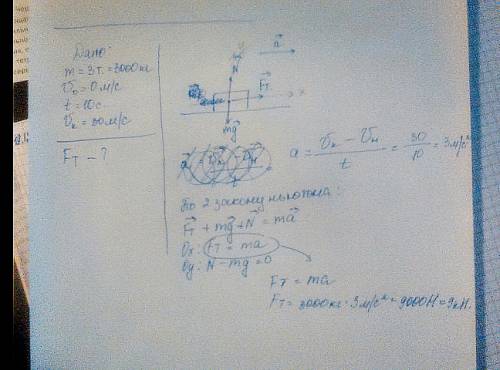 Дано:
m = 3т. = 3000кг
V₀ = 0 м/с
t = 10 с
Vₖ = 30 м/с
Fт - ?
y
a⃗
N⃗
F⃗т
x
mg⃗
a = (Vₖ - Vₙ)/t = 30/10 = 3 м/с²
По 2 закону Ньютона:
F⃗т + mg⃗ + N⃗ = ma⃗
Ox: Fт = ma
Oy: N - mg = 0
Fт = ma
Fт = 3000кг · 3 м/с² = 9000Н = 9кН.